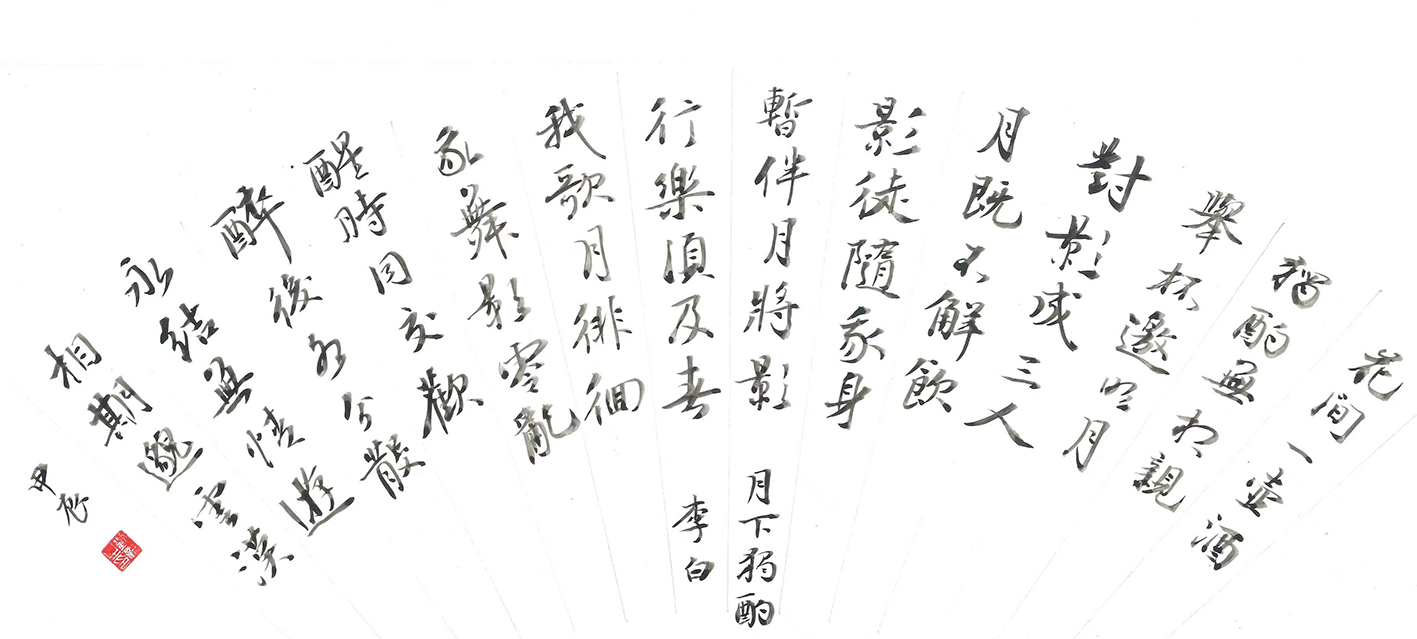 花間一壺酒
獨酌無相親
舉杯邀明月
對影成三人
月既不解飲
影徒隨我身
暫伴月將影
行樂須及春
我歌月徘徊
我舞影零亂
醒時同交歡
醉後各分散
永結無情遊
相期邈雲漢
月下獨酌
李白
甲辰